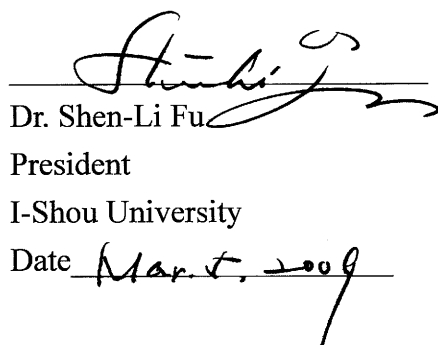 Dr. Shen-Li Fu
President
I-Shou University
Date Mar. 5, 2009